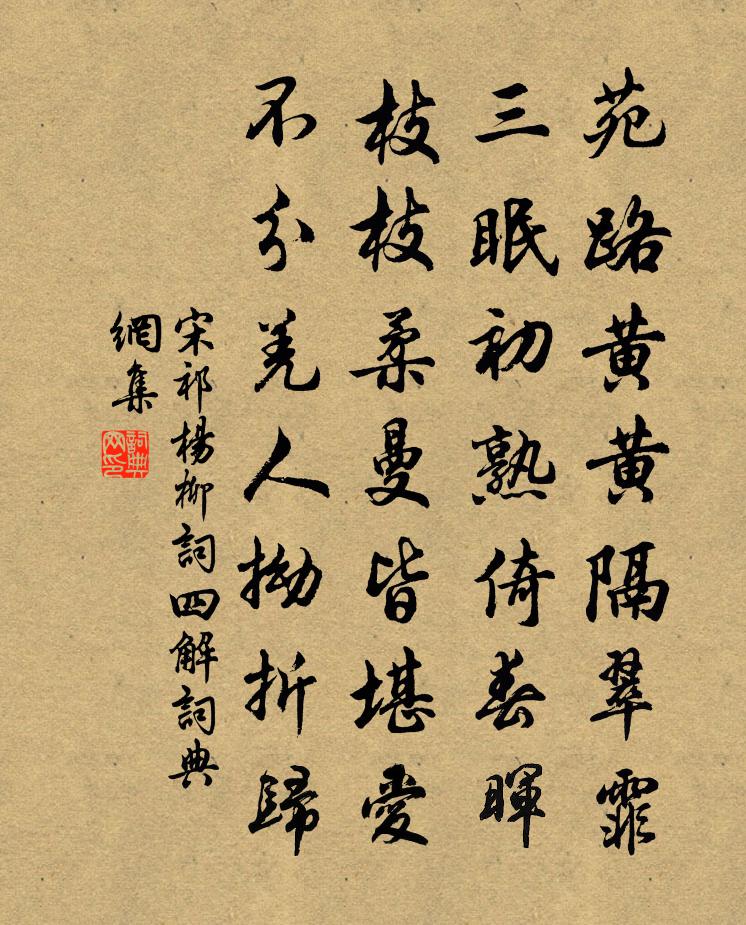 苑路黄黄隔翠霏
三眠初熟倚春暉
枝枝柔曼皆堪愛
不分羌人拗折歸
宋祁楊柳詞四解詞典
網集
詞典
网印